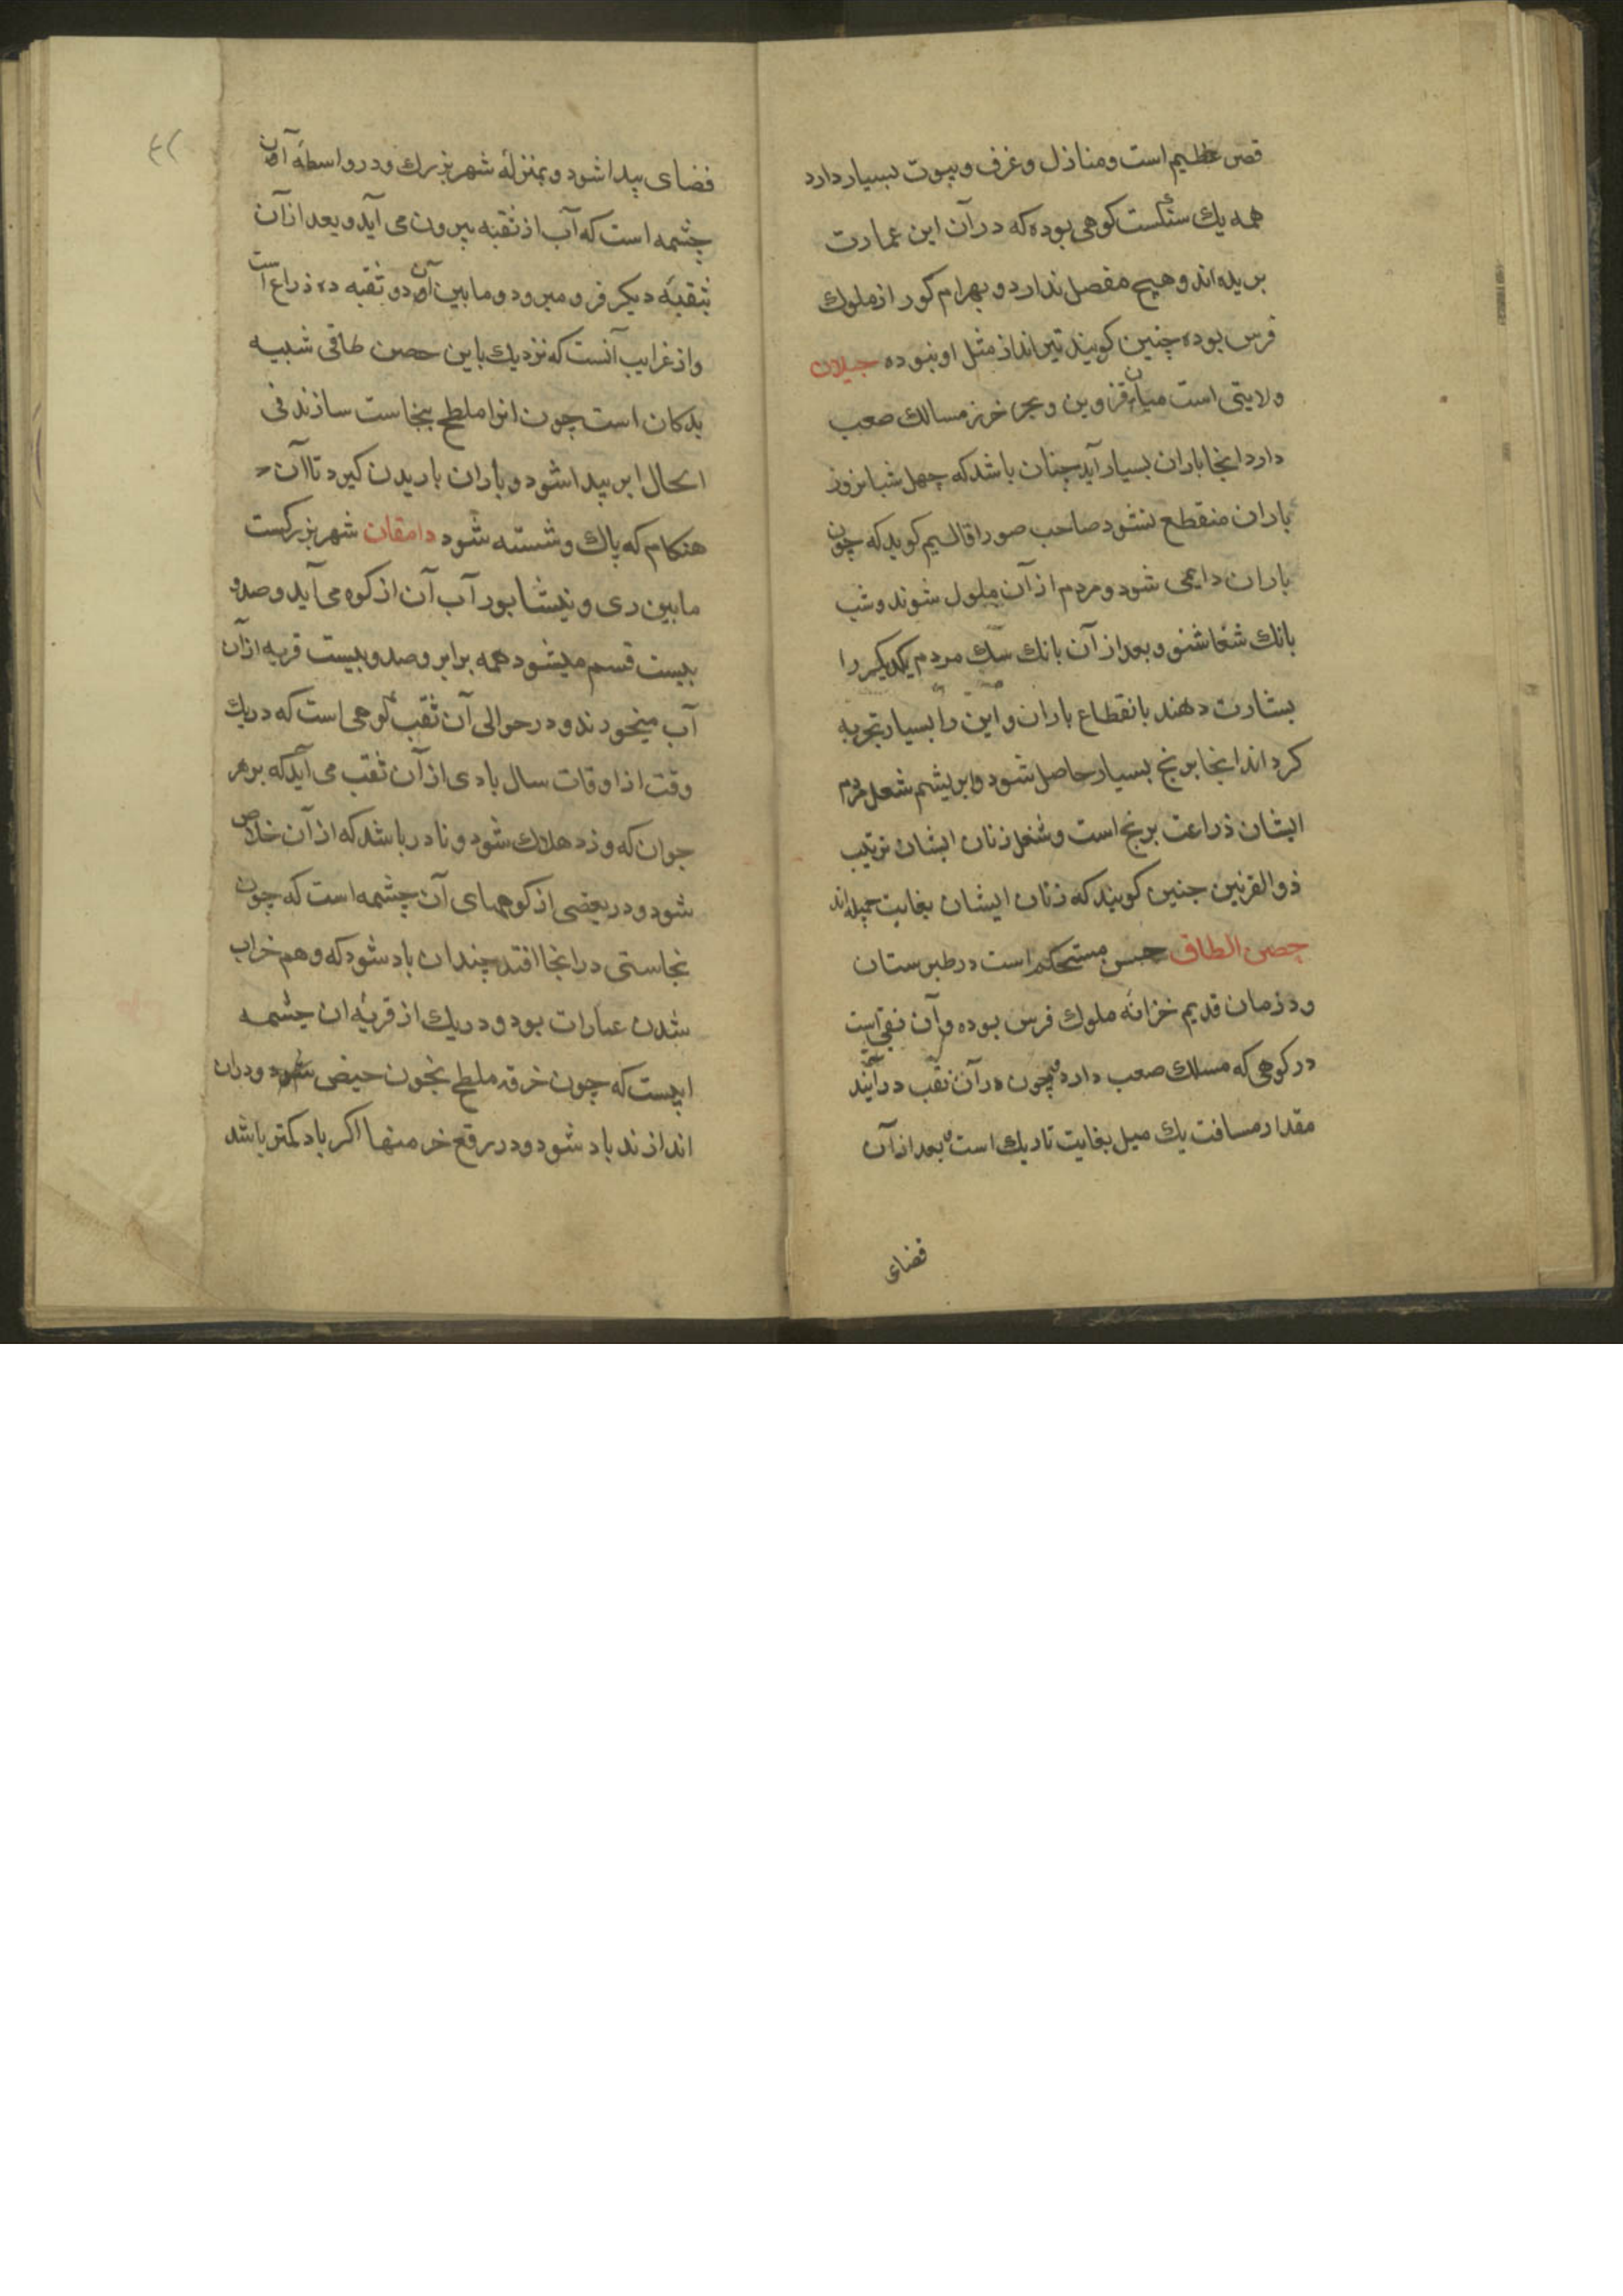 قصر عظیم است ومنازل وغرف وبیوت بسیار دارد
همه یك سنکست کوهی بوده که در آن این عمارت
بریده اند وهیچ مفصل ندارد وبهرام کور از ملوك
فرس بوده چنین کویند تیر انداز مثل او نبوده جیلان
ولایتی است میان قزوین وبحر خزر مسالك صعب
دارد اینجا باران بسیار آید چنان باشد که چهل شبانروز
باران منقطع نشود صاحب صور اقالیم کوید که چون
باران دایمی شود ومردم از آن ملول شوند وشب
بانك شغا شنو وبعد از آن بانك سك مردم یکدیکر را
بشارت دهند بانقطاع باران واین را بسیار تجربه
کرد اند اینجا برنج بسیار حاصل شود وابریشم شعل مردم
ایشان ذراعت برنج است وشغل زنان ایشان ترتیب
ذوالقرنین جنین کویند که زنان ایشان بغایت جمیله اند
حصن الطاق حسن مستحکم است در طبرستان
ودر زمان قدیم خزانه ملوك فرس بوده وآن نقبی است
در کوهی که مسلك صعب دارد چون در آن نقب در آیند
مقدار مسافت یك میل بغایت تاریك است بعد از آن
فضای
٤٢
فضای پیدا شود وبمنزلهٔ شهر بزرك ودر واسطهٔ آن
چشمه است که آب از ثقبه بیرون می آید وبعد از آن
بثقبهٔ دیکر فرو میرود وما بین آن دو ثقبه ده ذراع است
واز غرایب آنست که نزدیك باین حصن طاقی شبیه
بدکان است چون انرا ملطح بنجاست سازند فی
الحال ابر پیدا شود وباران باریدن کیرد تا آن
هنکام که پاك وشسته شود دامقان شهر بزرکست
مابین ری ونیشابور آب آن از کوه می آید وصد و
بیست قسم میشود همه برابر وصد وبیست قریه از آن
آب میخورند ودر حوالی آن ثقب کوهی است که در یك
وقت از اوقات سال بادی از آن ثقب می آید که بر هر
جوان که وزد هلاك شود ونادر باشد که از آن خلاص
شود ودر بعضی از کوههای آن چشمه است که چون
نجاستی در انجا افتد چندان باد شود که وهم خراب
شدن عمارات بود ودر یك از قریهٔ ان چشمه
ایست که چون خرقه ملطح بخون حیض شود ودران
اندازند باد شود ودر رقع خرمنها اکر باد کمتر باشد